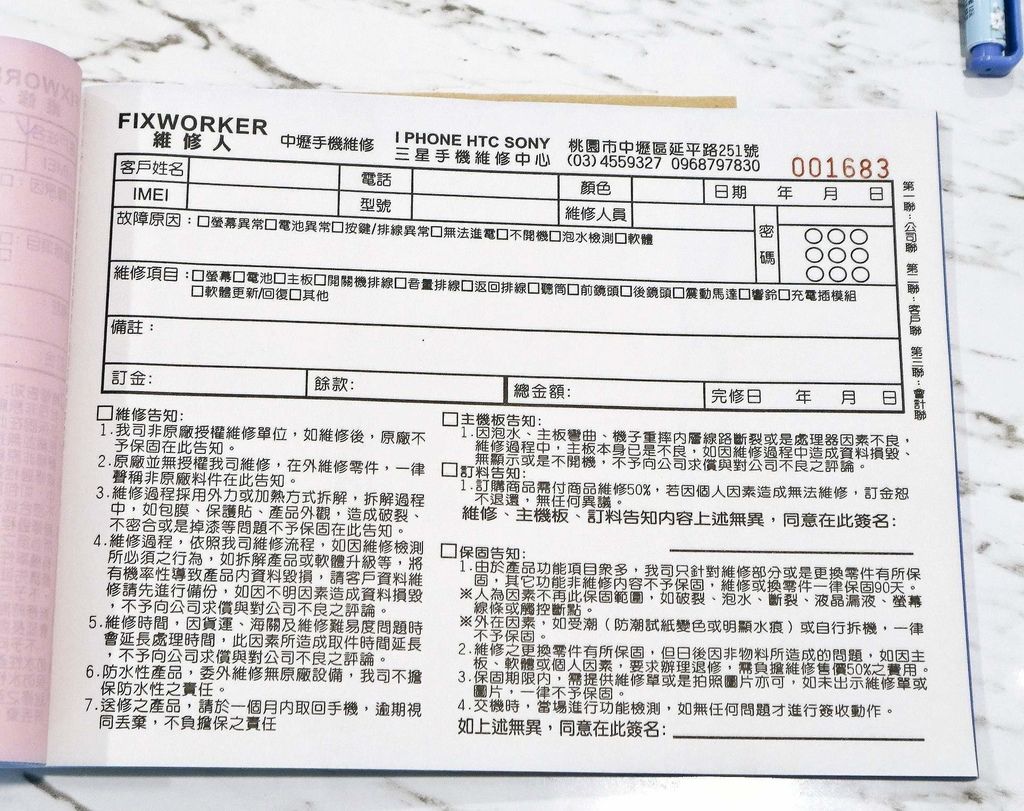 FIXWORKER
維修人
中壢手機維修
I PHONE HTC SONY
三星手機維修中心
桃園市中壢區延平路251號
(03)4559327 0968797830
001683
客戶姓名 電話 顏色 日期 年 月 日
IMEI 型號 維修人員
故障原因：□螢幕異常□電池異常□按鍵/排線異常□無法進電□不開機□泡水檢測□軟體
密碼
維修項目：□螢幕□電池□主板□開關機排線□音量排線□返回排線□聽筒□前鏡頭□後鏡頭□震動馬達□響鈴□充電插模組
□軟體更新/回復□其他
備註：
訂金: 餘款: 總金額: 完修日 年 月 日
第一聯：公司聯 第二聯：客戶聯 第三聯：會計聯
□維修告知:
1.我司非原廠授權維修單位，如維修後，原廠不
予保固在此告知。
2.原廠並無授權我司維修，在外維修零件，一律
聲稱非原廠料件在此告知。
3.維修過程採用外力或加熱方式拆解，拆解過程
中，如包膜、保護貼、產品外觀，造成破裂、
不密合或是掉漆等問題不予保固在此告知。
4.維修過程，依照我司維修流程，如因維修檢測
所必須之行為，如拆解產品或軟體升級等，將
有機率性導致產品內資料毀損，請客戶資料維
修請先進行備份，如因不明因素造成資料損毀
，不予向公司求償與對公司不良之評論。
5.維修時間，因貨運、海關及維修難易度問題時
會延長處理時間，此因素所造成取件時間延長
，不予向公司求償與對公司不良之評論。
6.防水性產品，委外維修無原廠設備，我司不擔
保防水性之責任。
7.送修之產品，請於一個月內取回手機，逾期視
同丟棄，不負擔保之責任
□主機板告知:
1.因泡水、主板彎曲、機子重摔内層線路斷裂或是處理器因素不良，
維修過程中，主板本身已是不良，如因維修過程中造成資料損毀、
無顯示或是不開機，不予向公司求償與對公司不良之評論。
□訂料告知:
1.訂購商品需付商品維修50%，若因個人因素造成無法維修，訂金恕
不退還，無任何異議。
維修、主機板、訂料告知內容上述無異，同意在此簽名:
□保固告知:
1.由於產品功能項目眾多，我司只針對維修部分或是更換零件有所保
固，其它功能非維修內容不予保固，維修或換零件一律保固90天。
※人為因素不再此保固範圍，如破裂、泡水、斷裂、液晶漏液、螢幕
線條或觸控斷點。
※外在因素，如受潮（防潮試紙變色或明顯水痕）或自行拆機，一律
不予保固。
2.維修之更換零件有所保固，但日後因非物料所造成的問題，如因主
板、軟體或個人因素，要求辦理退修，需負擔維修售價50%之費用。
3.保固期限內，需提供維修單或是拍照圖片亦可，如未出示維修單或
圖片，一律不予保固。
4.交機時，當場進行功能檢測，如無任何問題才進行簽收動作。
如上述無異，同意在此簽名: